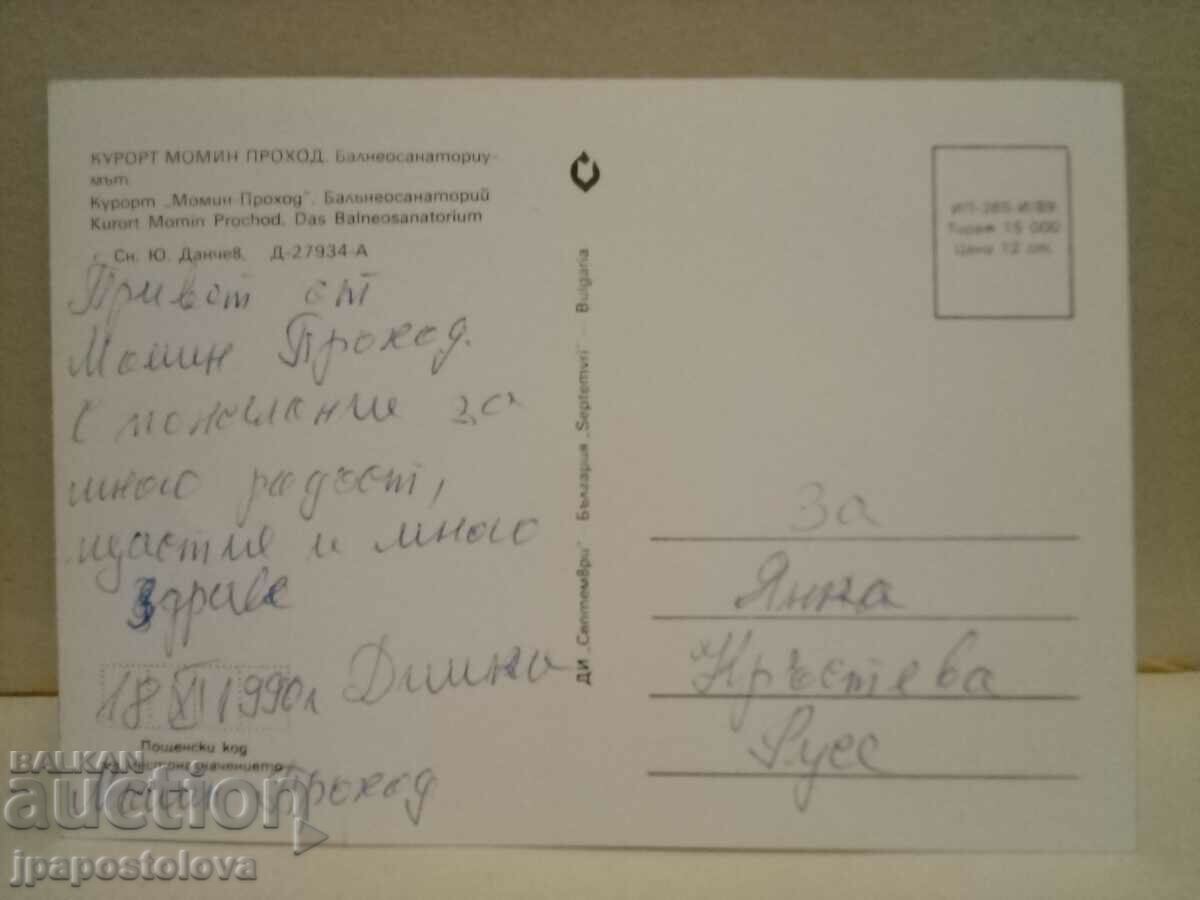 КУРОРТ МОМИН ПРОХОД. Балнеосанаториу-
мът
Курорт „Момин Проход". Бальнеосанаторий
Kurort Momin Prochod. Das Balneosanatorium
Сн. Ю. Данчев. Д-27934-А
Привет от
Момин Проход.
С пожелание за
много радост,
щастие и много
здраве
18 XI 1990г Димка
Пощенски код
на местоназначението
Момин Проход
ДИ „Септември" България „Septemvri" Bulgaria
Тираж 15 000
Цена 12 ст.
За
Янка
Кръстева
Русе
BALKAN
auction
jpapostolova